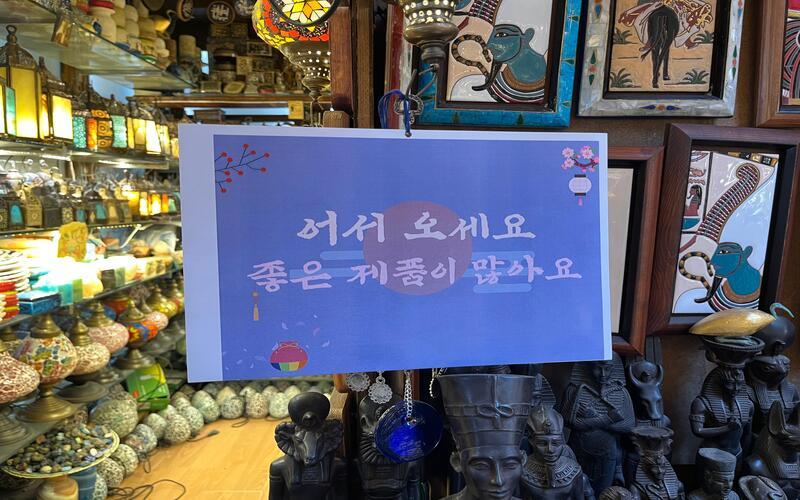 어서 오세요
좋은 제품이 많아요